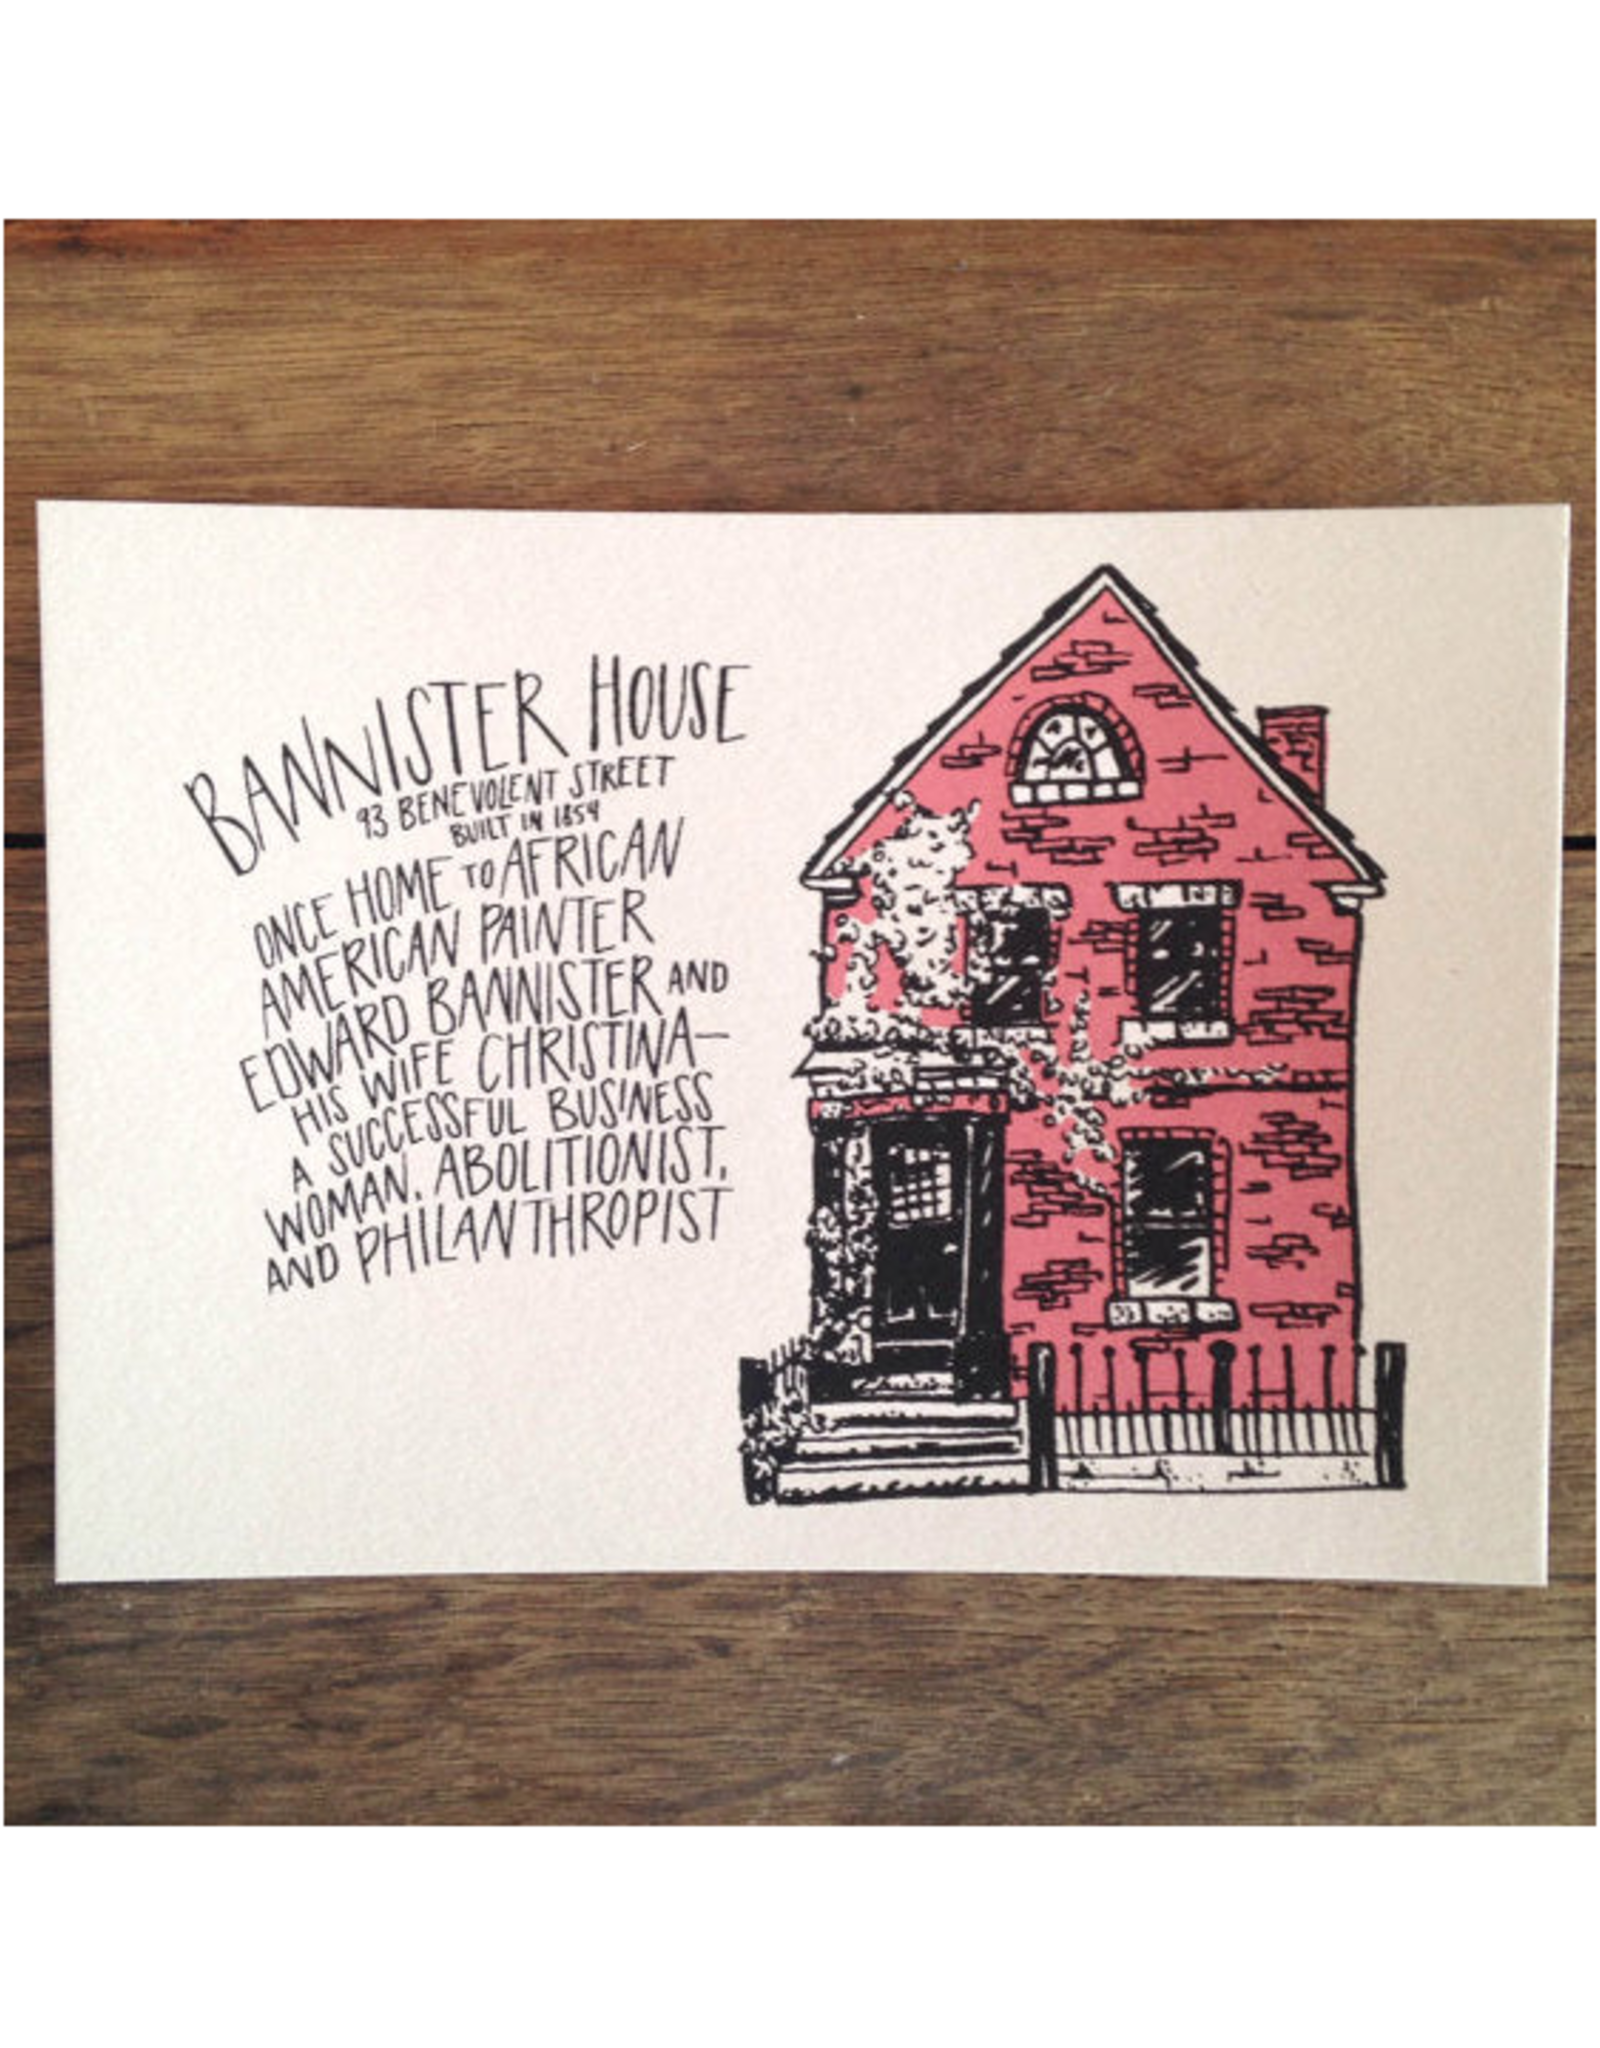 BANNISTER HOUSE
93 BENEVOLENT STREET
BUILT IN 1854
ONCE HOME TO AFRICAN
AMERICAN PAINTER
EDWARD BANNISTER AND
HIS WIFE CHRISTINA—
A SUCCESSFUL BUSINESS
WOMAN, ABOLITIONIST,
AND PHILANTHROPIST